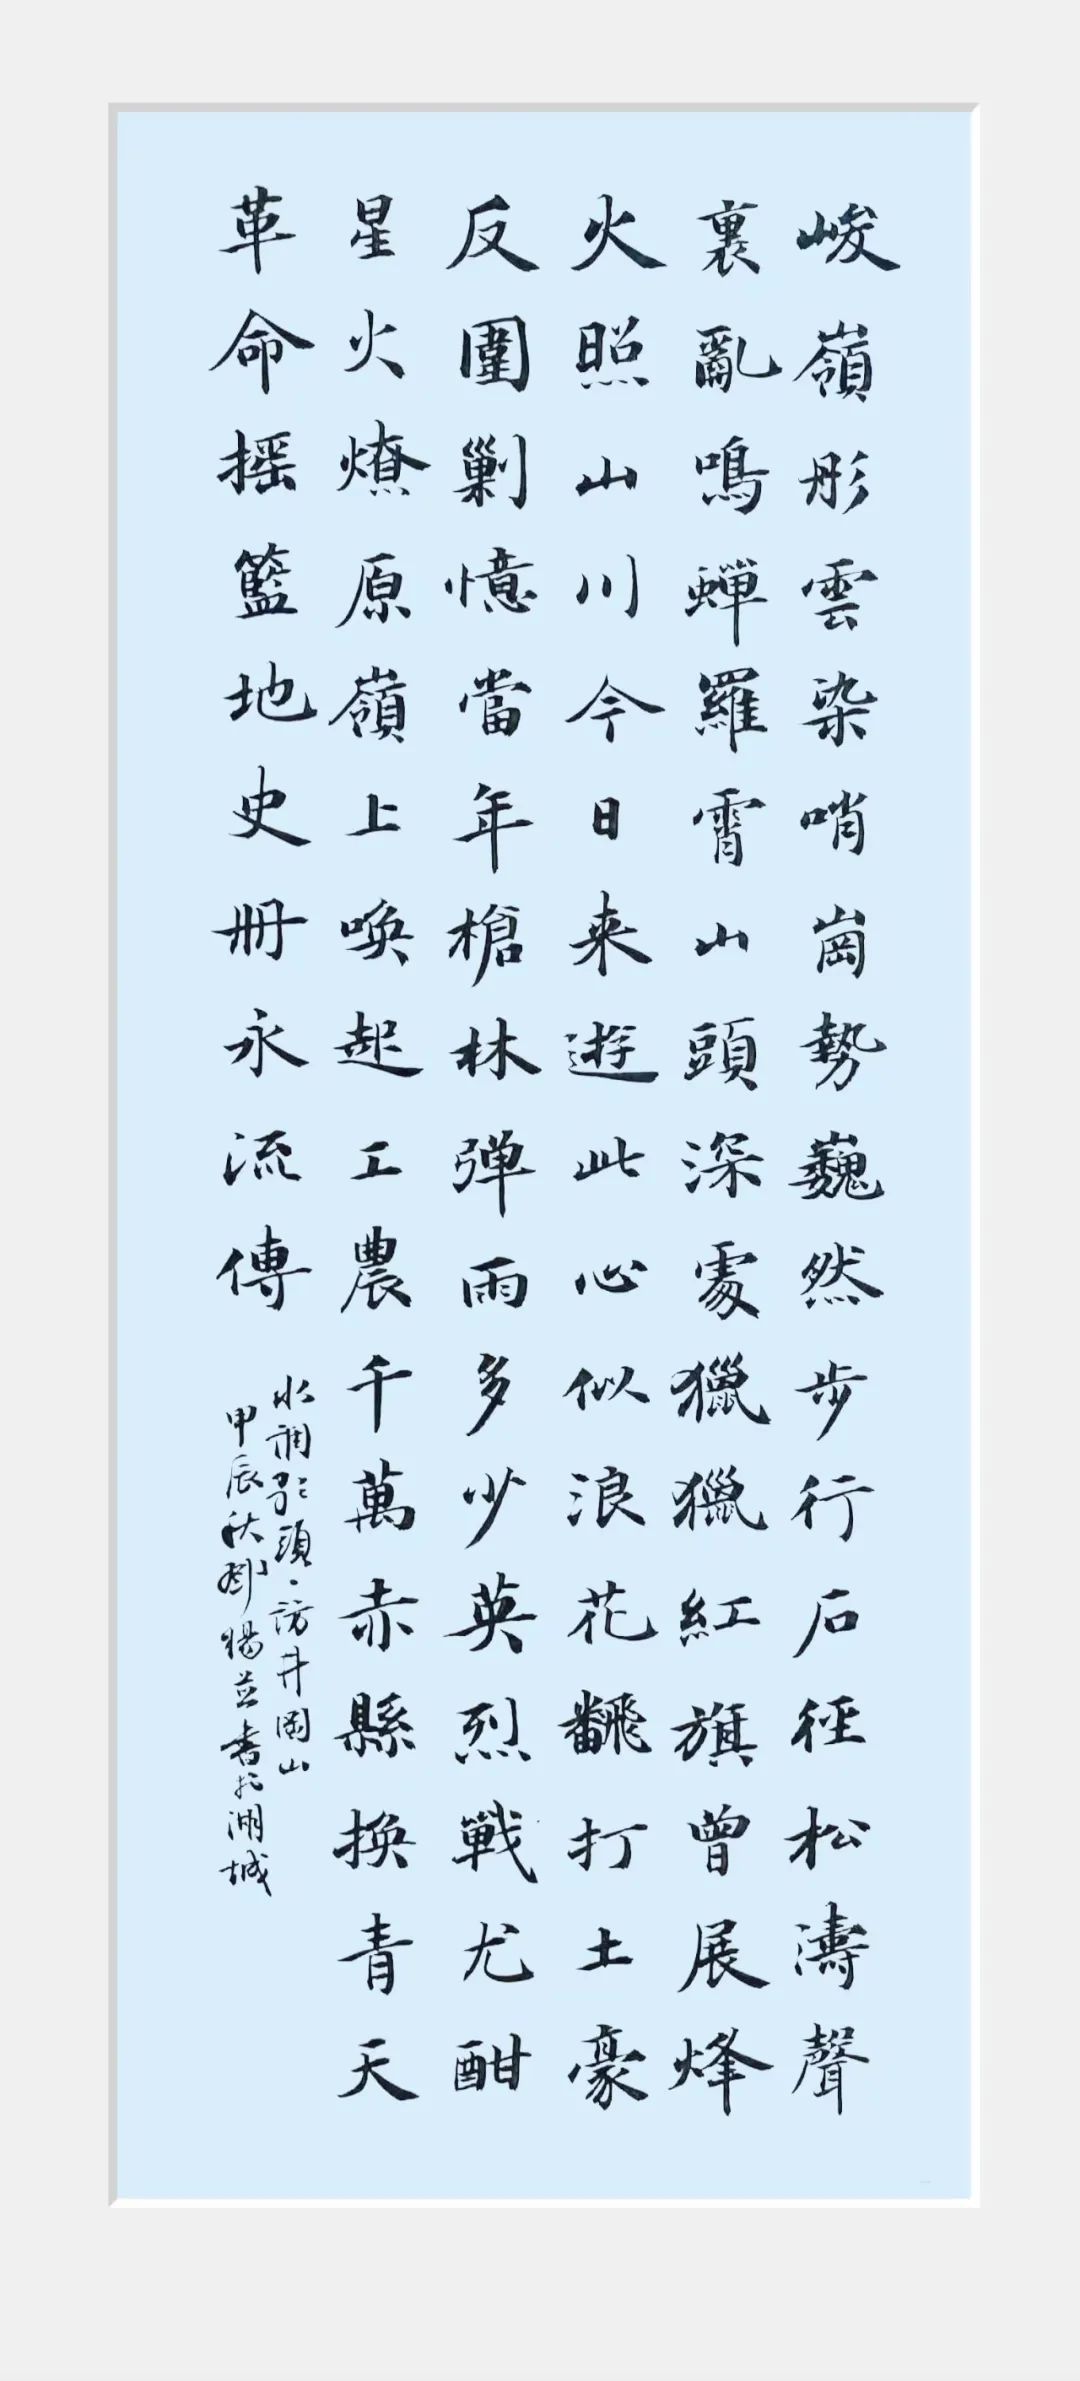 峻嶺彤雲染哨崗勢巍然步行石徑松濤聲
裏亂鳴蟬羅霄山頭深處獵獵紅旗曾展烽
火照山川今日来遊此心似浪花飜打土豪
反圍剿憶當年槍林弹雨多少英烈戰尤酣
星火燎原嶺上唤起工農千萬赤縣换青天
革命摇籃地史册永流傳
水調歌頭·訪井岡山
甲辰秋劉楊並書於湖城